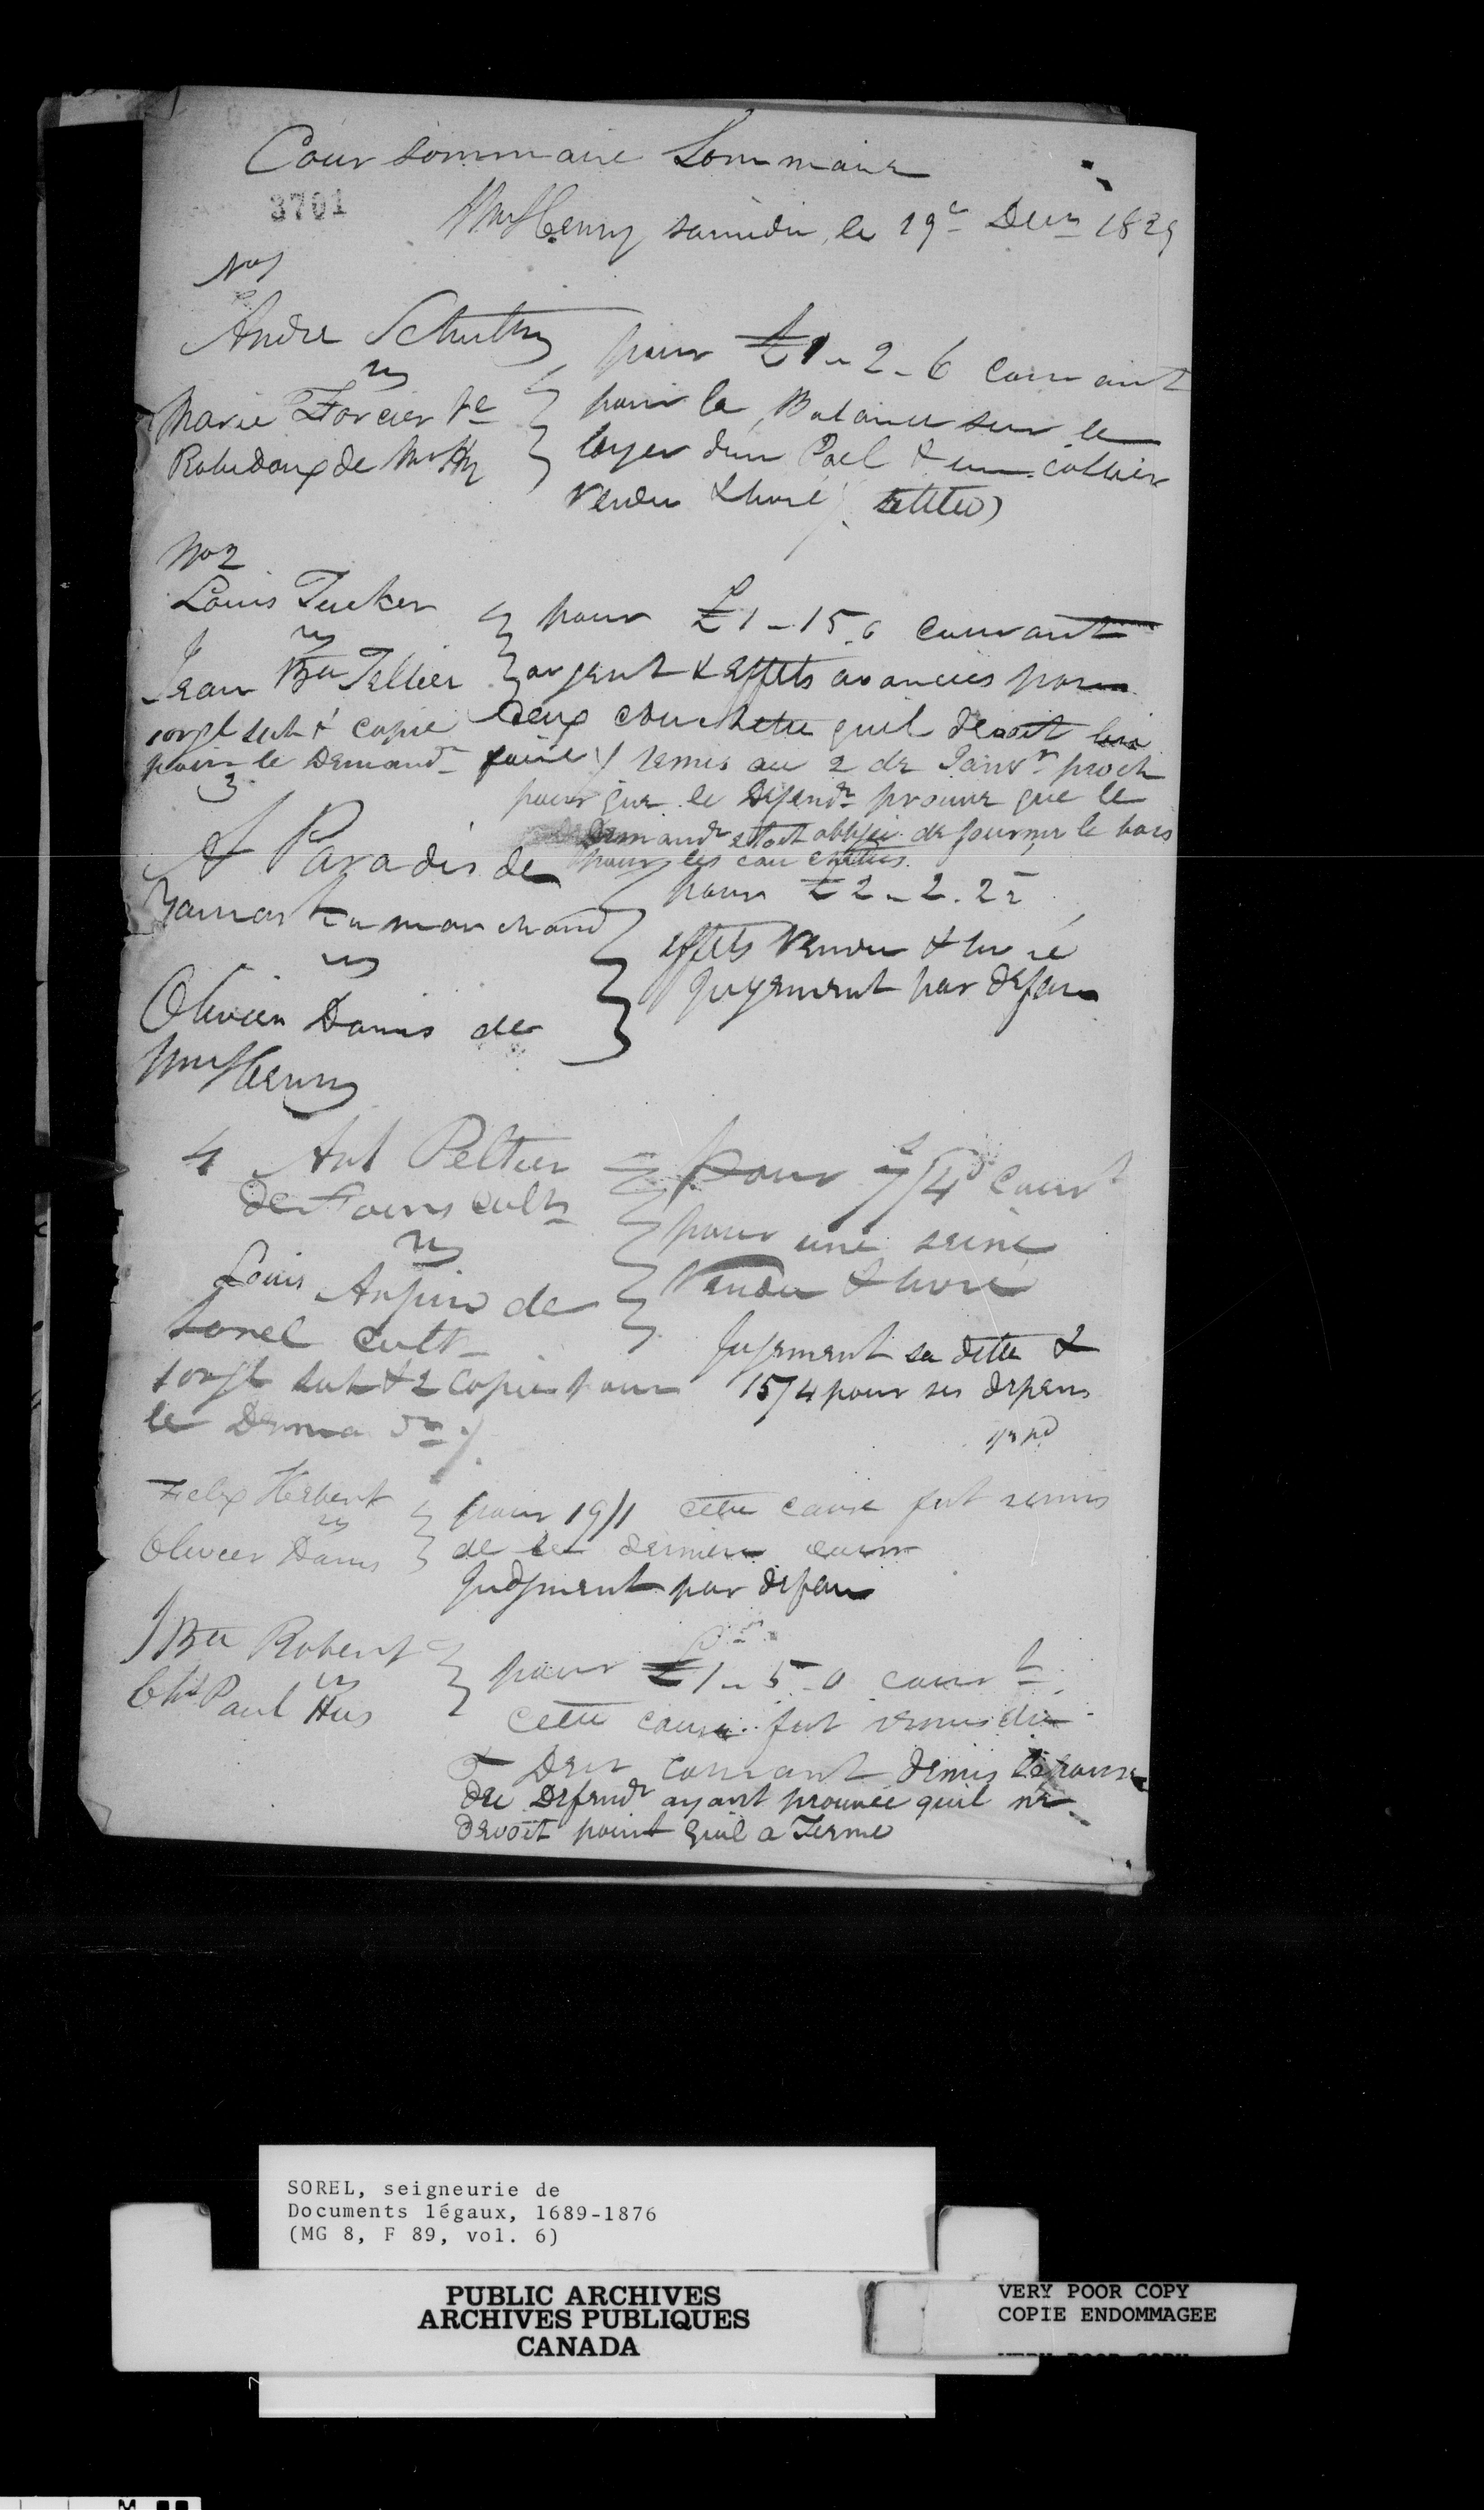 Cour sommaire Sommaire
3701
Wm Henry samedie, le 19e Decr 1829
No 1
Andre Schulthy
vs
Marie Forcier Ve
Robidoux de Wm Hy
pour £1-2-6 courant
pour la Balance sur le
loyer dun Poel & un collier
Vendu & livré / settled)
No 2
Louis Tucker
vs
Jean Bte Tellier
1 orgl sub & 1 copie
pour le Demandr
pour £1-15.0 courant
argent & effets avancées pour
deux couchette quil devoit lui
faire / remis au 2 de Janvr proch
pour que le Defendr prouve que le
Demandr etoit obligée de fournir le bois
pour les couchettes.
3
A Paradis de
Yamaska marchand
vs
Olivier Danis de
Wm Henry
pour £2-2.2½
effets Vendu & livré
jugement par defau
4 Ant Peltier
de Fours cultr
vs
Louis Arpin de
Sorel cultr
1 orgl sub & 2 copies pour
le Demandr /
pour 7/4d Court
pour une seine
Vendu & livré
Jugement sa dette &
15/4 pour ses depens
Felix Herbert
vs
Olivier Danis
pour 19/1 cette cause fut remis
de la derniere cour
Judgment par defau
J Bte Robert
vs
Cht Paul Hus
pour £1-5-0 court
cette cause fut remis du
5 Decr courant demis la cause
die Defendr ayant prouvée quil ne
devoit point quil a Terme
SOREL, seigneurie de
Documents légaux, 1689-1876
(MG 8, F 89, vol. 6)
PUBLIC ARCHIVES
ARCHIVES PUBLIQUES
CANADA
VERY POOR COPY
COPIE ENDOMMAGEE
VERY POOR COPY